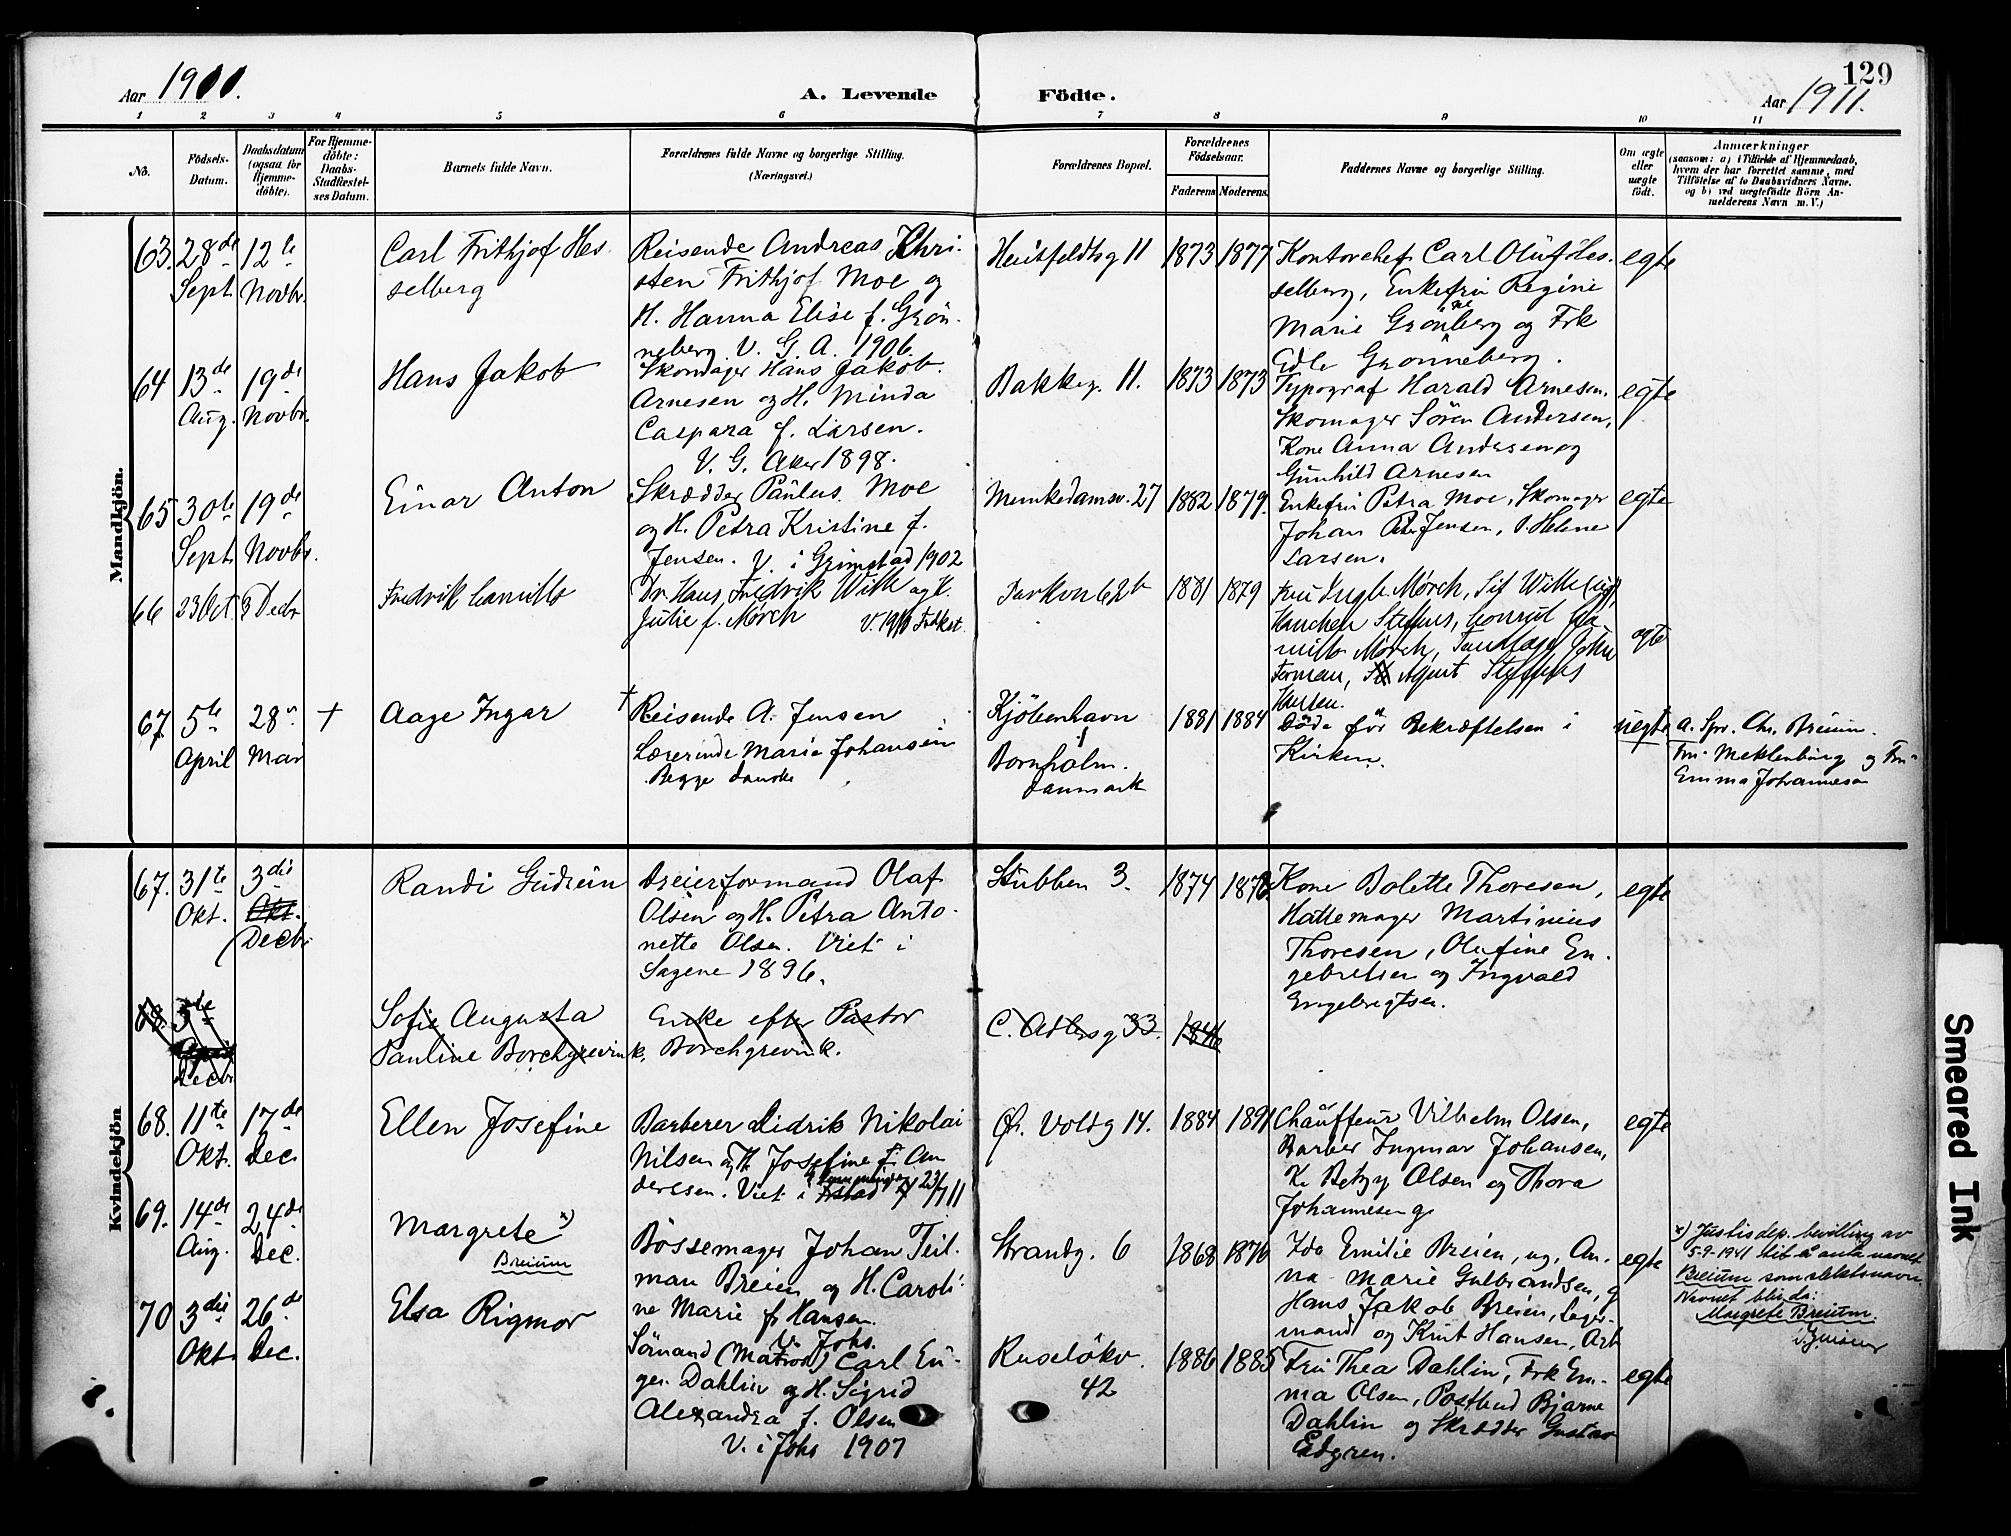 Aar 1911.
A. Levende Födte.
129
Aar 1911.
1 2 3 4 5 6 7 8 9 10 11
No.
Födsels-
Datum.
Daabsdatum
(ogsaa for
Hjemme-
döbte).
For Hjemme-
döbte:
Daabs-
Stadfæstel-
ses Datum.
Barnets fulde Navn.
Forældrenes fulde Navne og borgerlige Stilling.
(Næringsvei.)
Forældrenes Bopæl.
Forældrenes
Födselsaar.
Faderens Moderens.
Faddernes Navne og borgerlige Stilling.
Om ægte
eller
uægte
födt.
Anmærkninger
(saasom: a) i Tilfælde af Hjemmedaab,
hvem der har forrettet samme, med
Tilföielse af to Daabsvidners Navne.
og b) ved uægtefödte Börn An-
melderens Navn m. V.)
Mandkjön.
63. 28de
Sept.
12te
Novbr.
Carl Frithjof Hes
selberg
Reisende Andreas Chri-
sten Frithjof Moe og
H. Hanna Elise f. Grön-
neberg. V. G. A. 1906.
Huitfeldtsg 11
1873 1877
Kontorchef Carl Oluf Hes-
selberg, Enkefru Regine
Marie Grönneberg og Frk
Edle Grönneberg.
egte
64 13de
Aug.
19de
Novbr.
Hans Jakob
Skomager Hans Jakob
Arnesen og H. Minda
Caspara f. Larsen.
V. G. Aker 1898.
Bakkeg. 11.
1873 1873
Typograf Harald Arnesen.
Skomager Sören Andersen,
Kone Anna Andersen og
Gunhild Arnesen
egte
65 30te
Sept.
19de
Novbr.
Einar Anton
Skrædder Paulus Moe
og H. Petra Kristine f.
Jensen. V. i Grimstad 1902
Munkedamsv. 27
1882 1879.
Enkefru Petra Moe, Skomager
Johan Peter Jensen, P. Helene
Larsen.
egte
66 23 Okt. 3 Decbr
Fredrik Camillo
Dr. Hans Fredrik With og H.
Julie f. Mørch
V. 1910
Parkvn 62b
1881 1879
Mørch, Sif With
Mørch,
Agent Steffens
Hansen.
egte
67. 5te
April
28de
Mai
+
Aage Ingar
+ Reisende A. Jensen
Lærerinde Marie Johansen
Begge danske
Kjöbenhavn
Bornholm.
Danmark
1881 1884
Döde för Bekræftelsen i
Kirken.
uegte
a. Spr. Chr. Breium.
Fru Meklenburg og Fru
Emma Johannesen
Kvindekjön
67. 31te
Okt.
3die
Okt.
Decbr
Randi Gudrun
Dreierformand Olaf
Olsen og H. Petra Anto-
nette Olsen. Viet i
Sagene 1896.
Stubben 3.
1874 1876
Kone Bolette Thoresen,
Hattemager Martinius
Thoresen, Olufine En-
gebretsen og Ingvald
Engebrigtsen.
egte
68. 5te
April
Decbr
Sofie Augusta
Pauline Borchgrevink.
Enke efter Pastor
Borchgrevink.
C. Adlersg 33.
1846
68. 11te
Okt.
17de
Dec.
Ellen Josefine
Barberer Didrik Nikolai
Nilsen og H. Josefine f. An
derssen. Viet i 23/7 11
Ø. Voldg 14.
1884 1891
Chauffeur Vilhelm Olsen,
Barber Ingmar Johansen,
K. Betzy Olsen og Thora
Johannesen
egte
69. 14de
Aug.
24de
Dec.
Margrete x)
Breium
Bössemager Johan Teil-
man Breien og H. Caroli-
ne Marie f. Hansen.
V. i Johs.
Strandg. 6
1868 1876
Ida Emilie Breien, ug, An-
na Marie Gulbrandsen, g
Hans Jakob Breien, Lager-
mand og Knut Hansen, Arb
egte
x) Justisdep. bevilling av
5-9-1941 til å anta navnet
Breium som slektsnavn
Navnet blir da:
Margrete Breium.
70 3die
Okt.
26de
Dec.
Elsa Rigmor
Sömand (Matros) Carl Eu-
gen Dahlin og H. Sigrid
Alexandra f. Olsen
V. i Johs 1907
Ruselökv.
42
1886 1885
Fru Thea Dahlin, Frk Em-
ma Olsen, Postbud Bjarne
Dahlin og Skrædder Gustav
Edgren.
egte
Smeared Ink